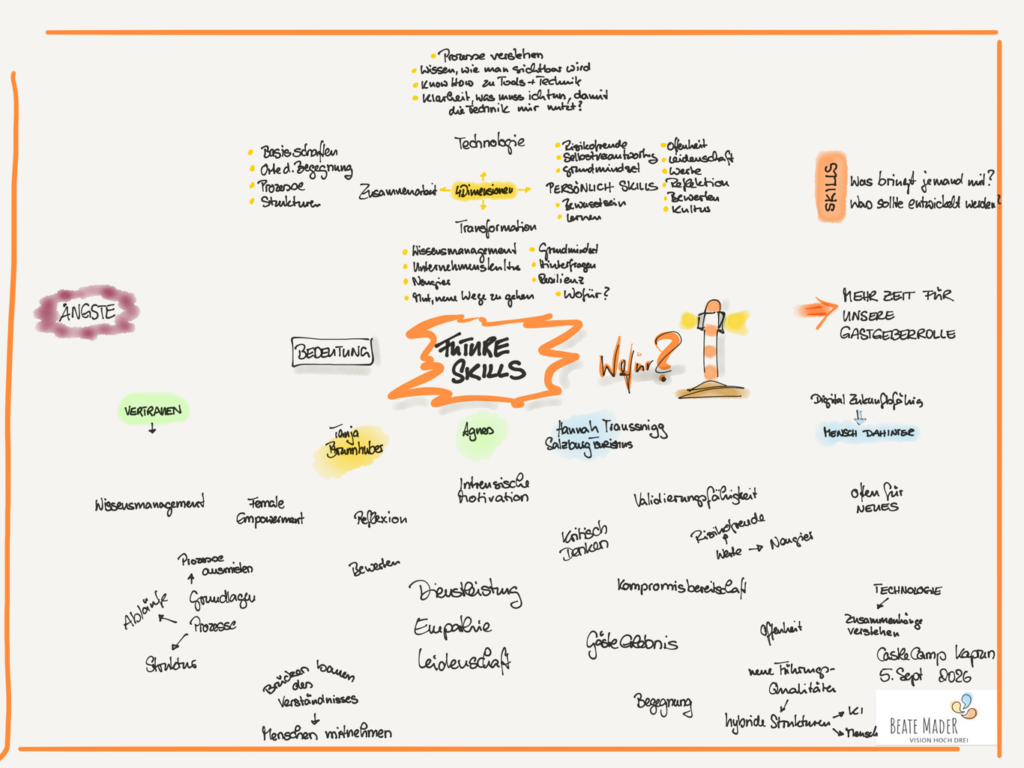 Prozesse verstehen
Wissen, wie man sichtbar wird
Know How zu Tools + Technik
Klarheit, was muss ich tun, damit
die Technik mir nutzt?
Technologie
Basis schaffen
Orte d. Begegnung
Prozesse
Strukturen
Zusammenarbeit
4 Dimensionen
PERSÖNLICH SKILLS
Risikofreude
Selbstverantwortung
Grundmindset
Bewusstsein
Lernen
Offenheit
Leidenschaft
Werte
Reflektion
Bewerten
Kultur
Transformation
Wissensmanagement
Unternehmenskultur
Neugier
Mut, neue Wege zu gehen
Grundmindset
Hinterfragen
Resilienz
Wofür?
SKILLS
Was bringt jemand mit?
Was sollte entwickelt werden?
ÄNGSTE
BEDEUTUNG
FUTURE
SKILLS
Wofür?
MEHR ZEIT FÜR
UNSERE
GASTGEBERROLLE
VERTRAUEN
Tanja
Brunnhuber
Agnes
Hannah Traussnigg
Salzburg TOURISTUS
Digital Zukunftsfähig
MENSCH DAHINTER
Wissensmanagement
Female
Empowerment
Reflexion
Intrensische
Motivation
Validierungsfähigkeit
Offen für
NEUES
Kritisch
Denken
Risikofreude
Werte
Neugier
Prozesse
ausmisten
Grundlagen
Abläufe
Prozesse
Struktur
Bewerten
Dienstleistung
Empathie
Leidenschaft
Kompromisbereitschaft
GästeErlebnis
Begegnung
Brücken bauen
des
Verständnisses
Menschen mitnehmen
TECHNOLOGIE
Zusammenhänge
verstehen
Offenheit
neue Führungs-
Qualitäten
hybride Strukturen
KI
Mensch
CastleCamp Kaprun
5. Sept 2026
BEATE MADER
VISION HOCH DREI